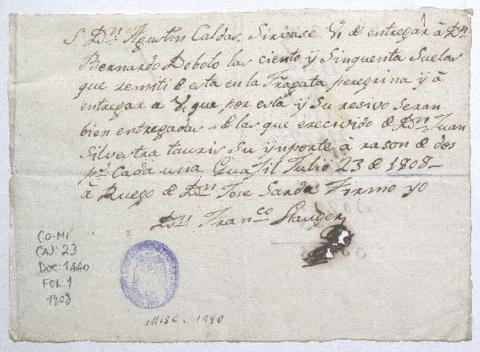 S. Dn. Agustin Caldas. Sirvase V. de entregar à Dn.
Bernardo Dobolo las ciento y Sinquenta Suelas
que remiti de esta en la Fragata peregrina y à
entregar a V. que por esta y Su resivo seran
bien entregadas de las que erecivido de Dn. Juan
Silvestra Su ynporte à rason de dos
ps. Cada una Gua[il Julio 23 de 1808
à Ruego de Dn. Jose Sarda Firmo yo
Dn. Franco
CO-MI
CAJ: 23
DOC: 1440
FOL 1
1808
Misc. 1440